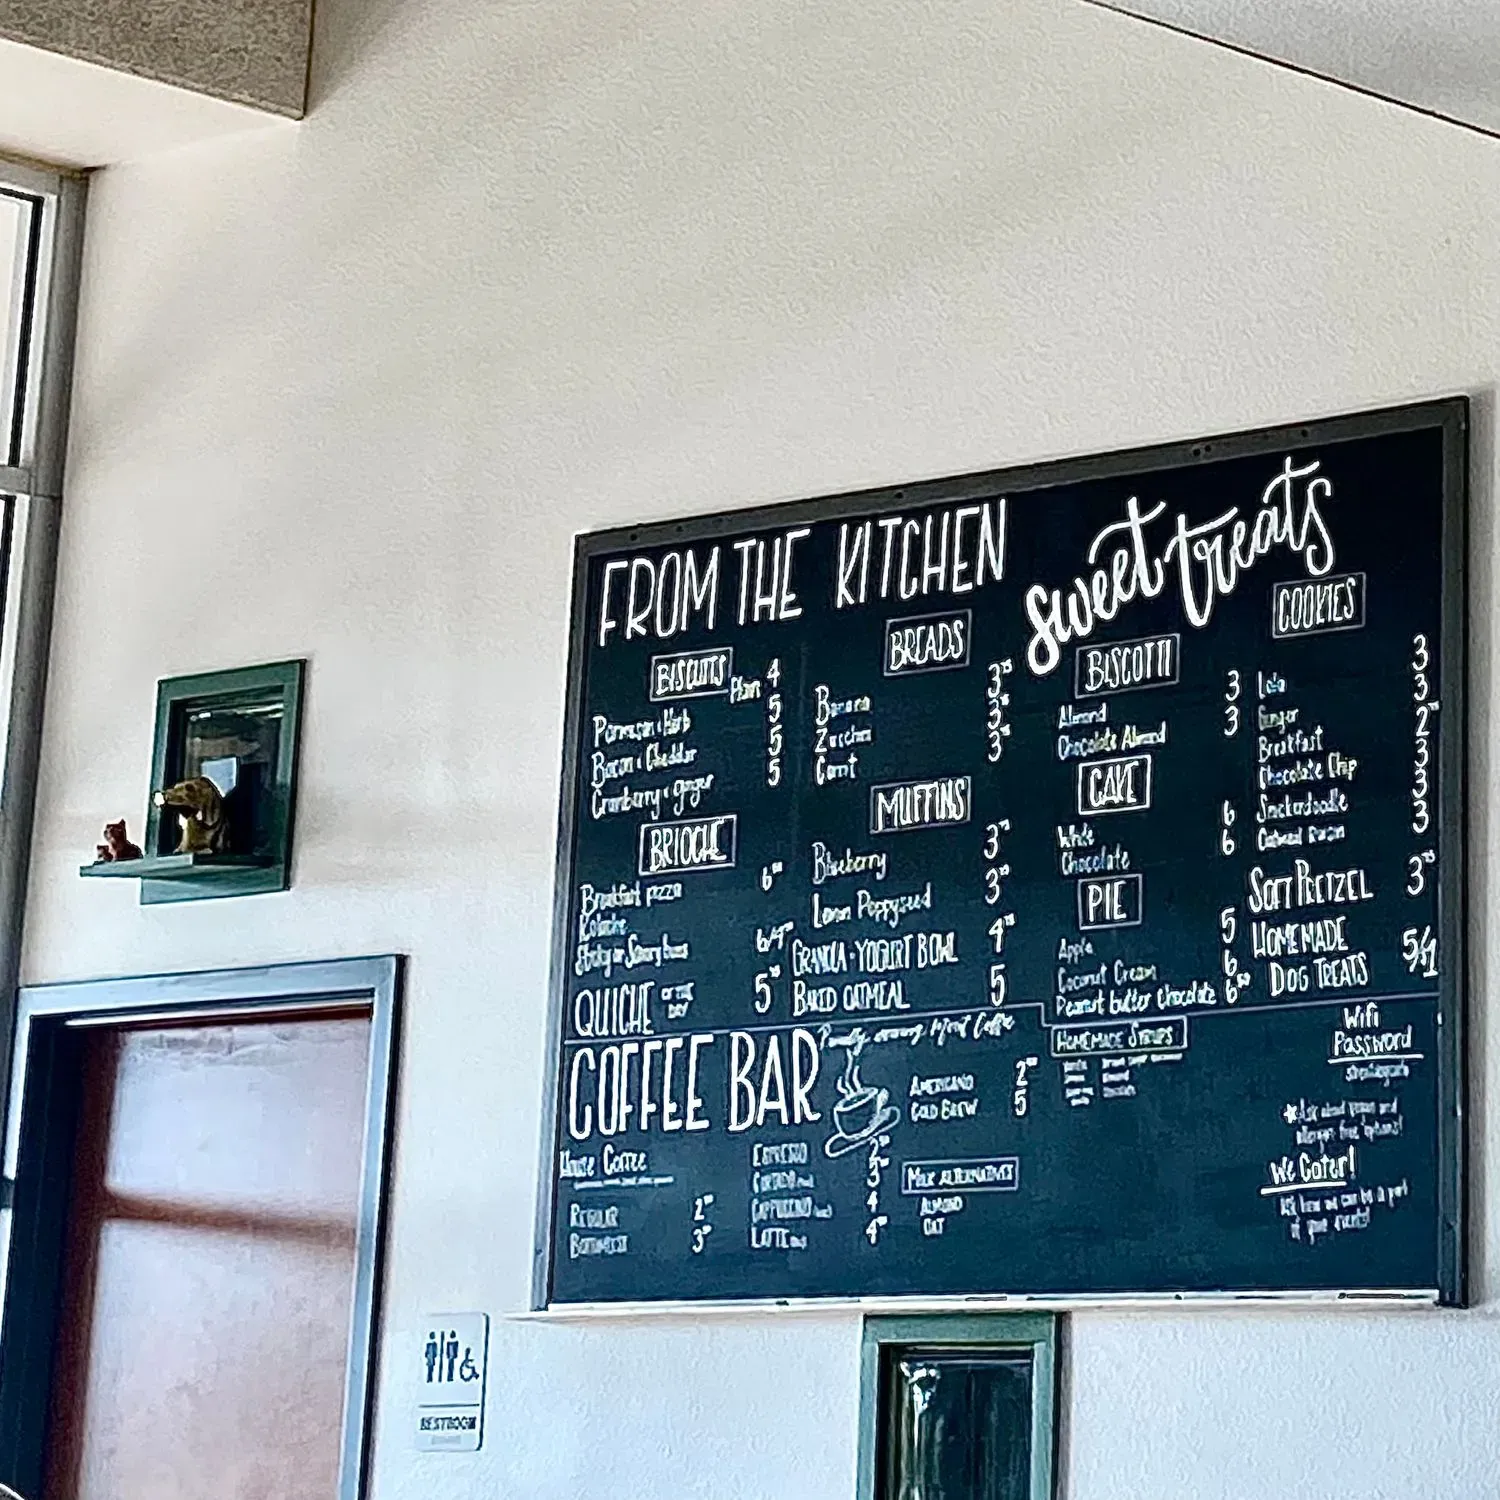 FROM THE KITCHEN
BISCUITS
Plain 4
Parmesan & Herb 5
Bacon & Cheddar 5
Cranberry & ginger 5
BRIOCHE
Breakfast pizza 6
Kolache
Sticky or Savory buns
QUICHE OF THE DAY 5
BREADS
Banana 3
Zucchini 3
Carrot 3
MUFFINS
Blueberry 3
Lemon Poppyseed 3
GRANOLA · YOGURT BOWL 4
BAKED OATMEAL 5
sweet treats
BISCOTTI
Almond 3
Chocolate Almond 3
CAKE
White 6
Chocolate 6
PIE
Apple 5
Coconut Cream 6
Peanut butter chocolate 6
COOKIES
Lola 3
Ginger 3
Breakfast 2
Chocolate Chip 3
Snickerdoodle 3
Oatmeal Raisin 3
SOFT PRETZEL 3
HOMEMADE
DOG TREATS 5/1
COFFEE BAR
Proudly serving Coffee
House Coffee
REGULAR 2
BOTTOMLESS 3
ESPRESSO 2
CORTADO 3
CAPPUCCINO 4
LATTE 4
AMERICANO 2
COLD BREW 5
MILK ALTERNATIVES
ALMOND
OAT
HOMEMADE SYRUPS
Wifi
Password
*Ask about vegan and
allergen free options!
We Cater!
Ask how we can be a part
of your events!
RESTROOM